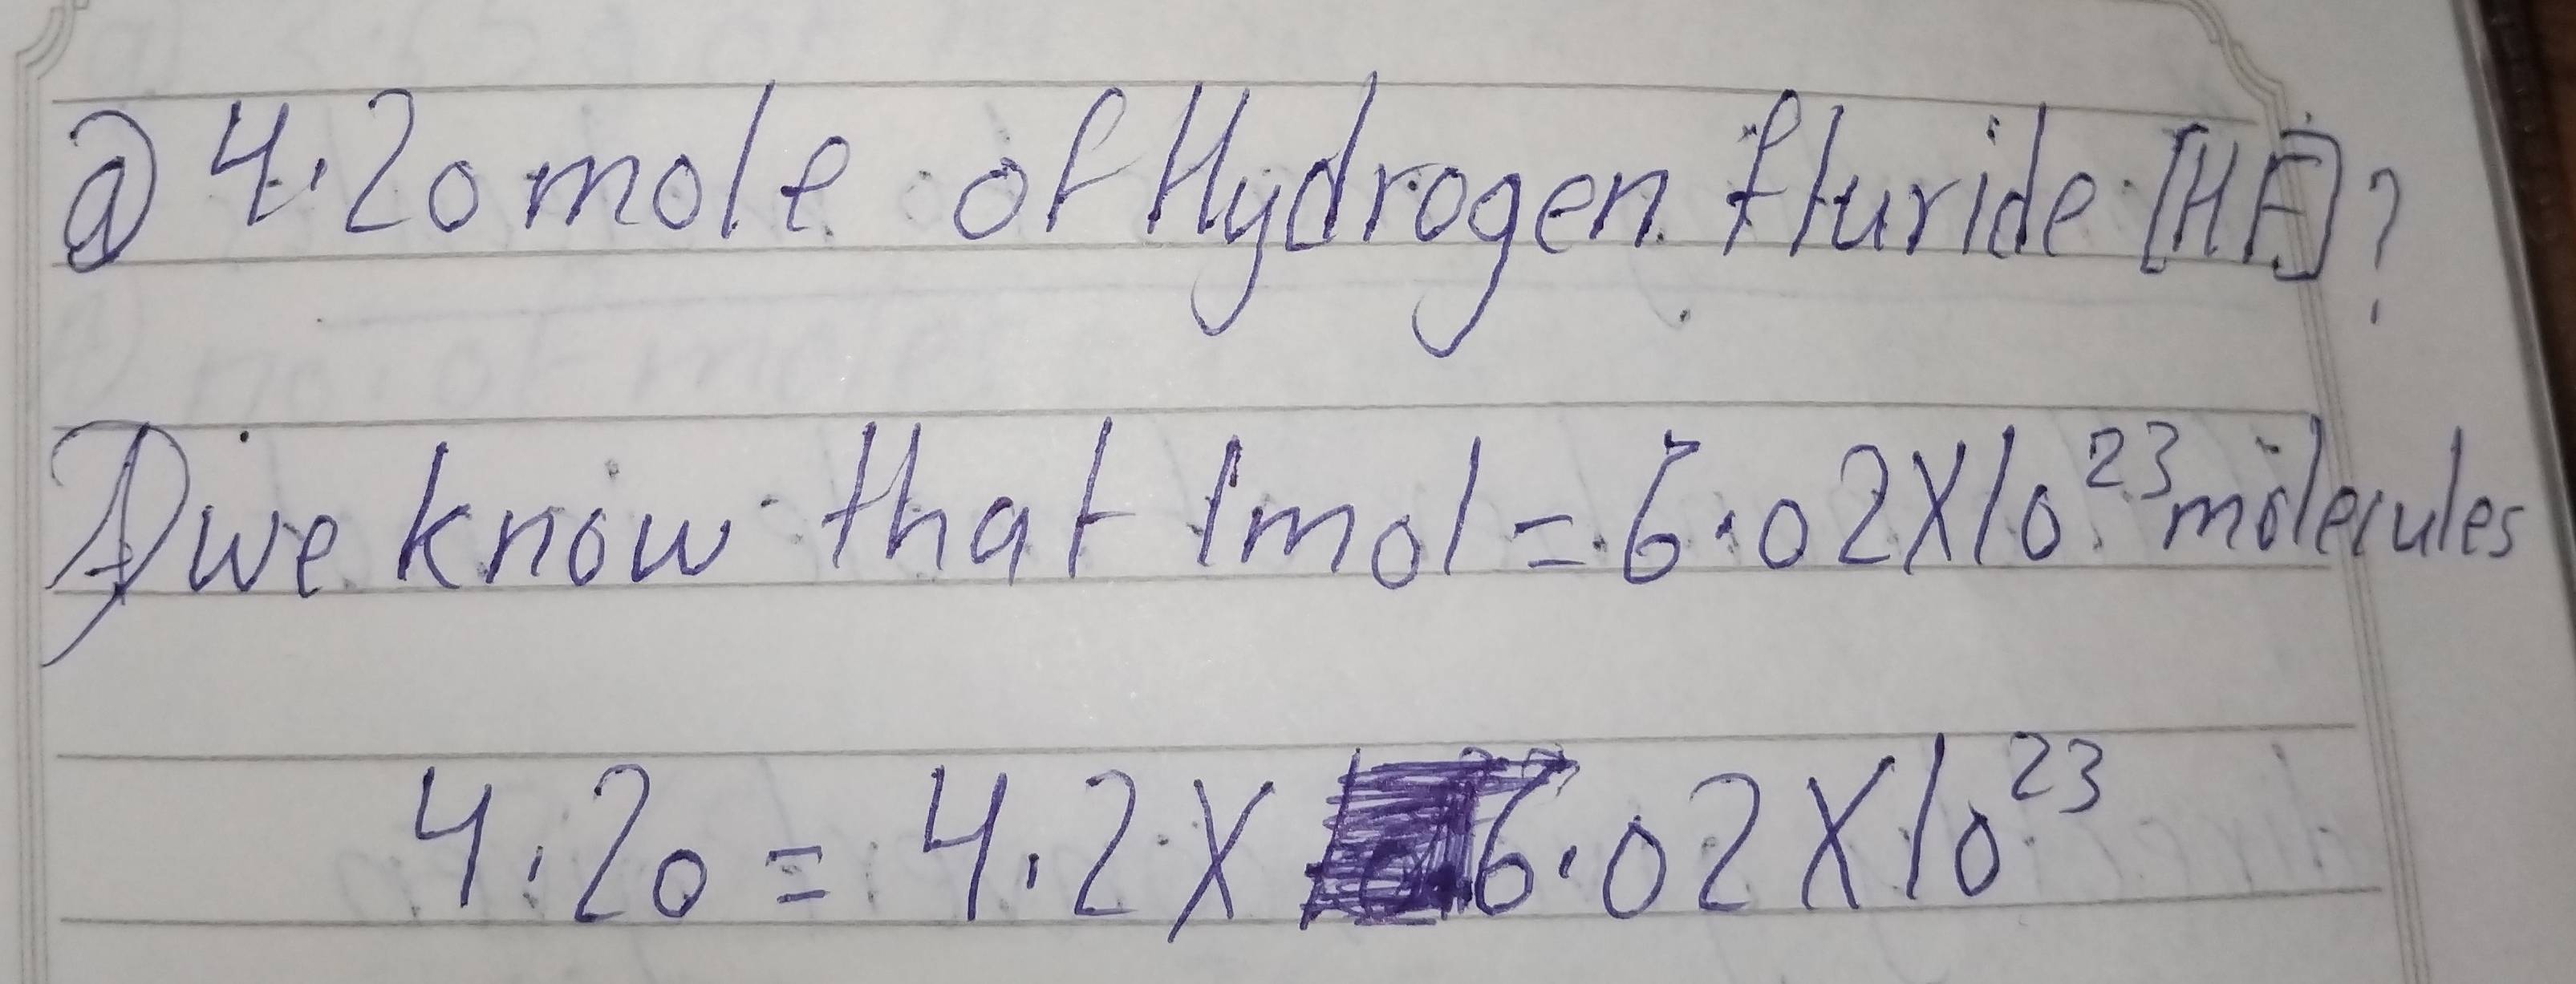 a) 4.20 mole of Hydrogen fluride [HF]?
A) we know that 1mol = 6.02X10²³ molecules
4.20 = 4.2 X 6.02 X 10²³